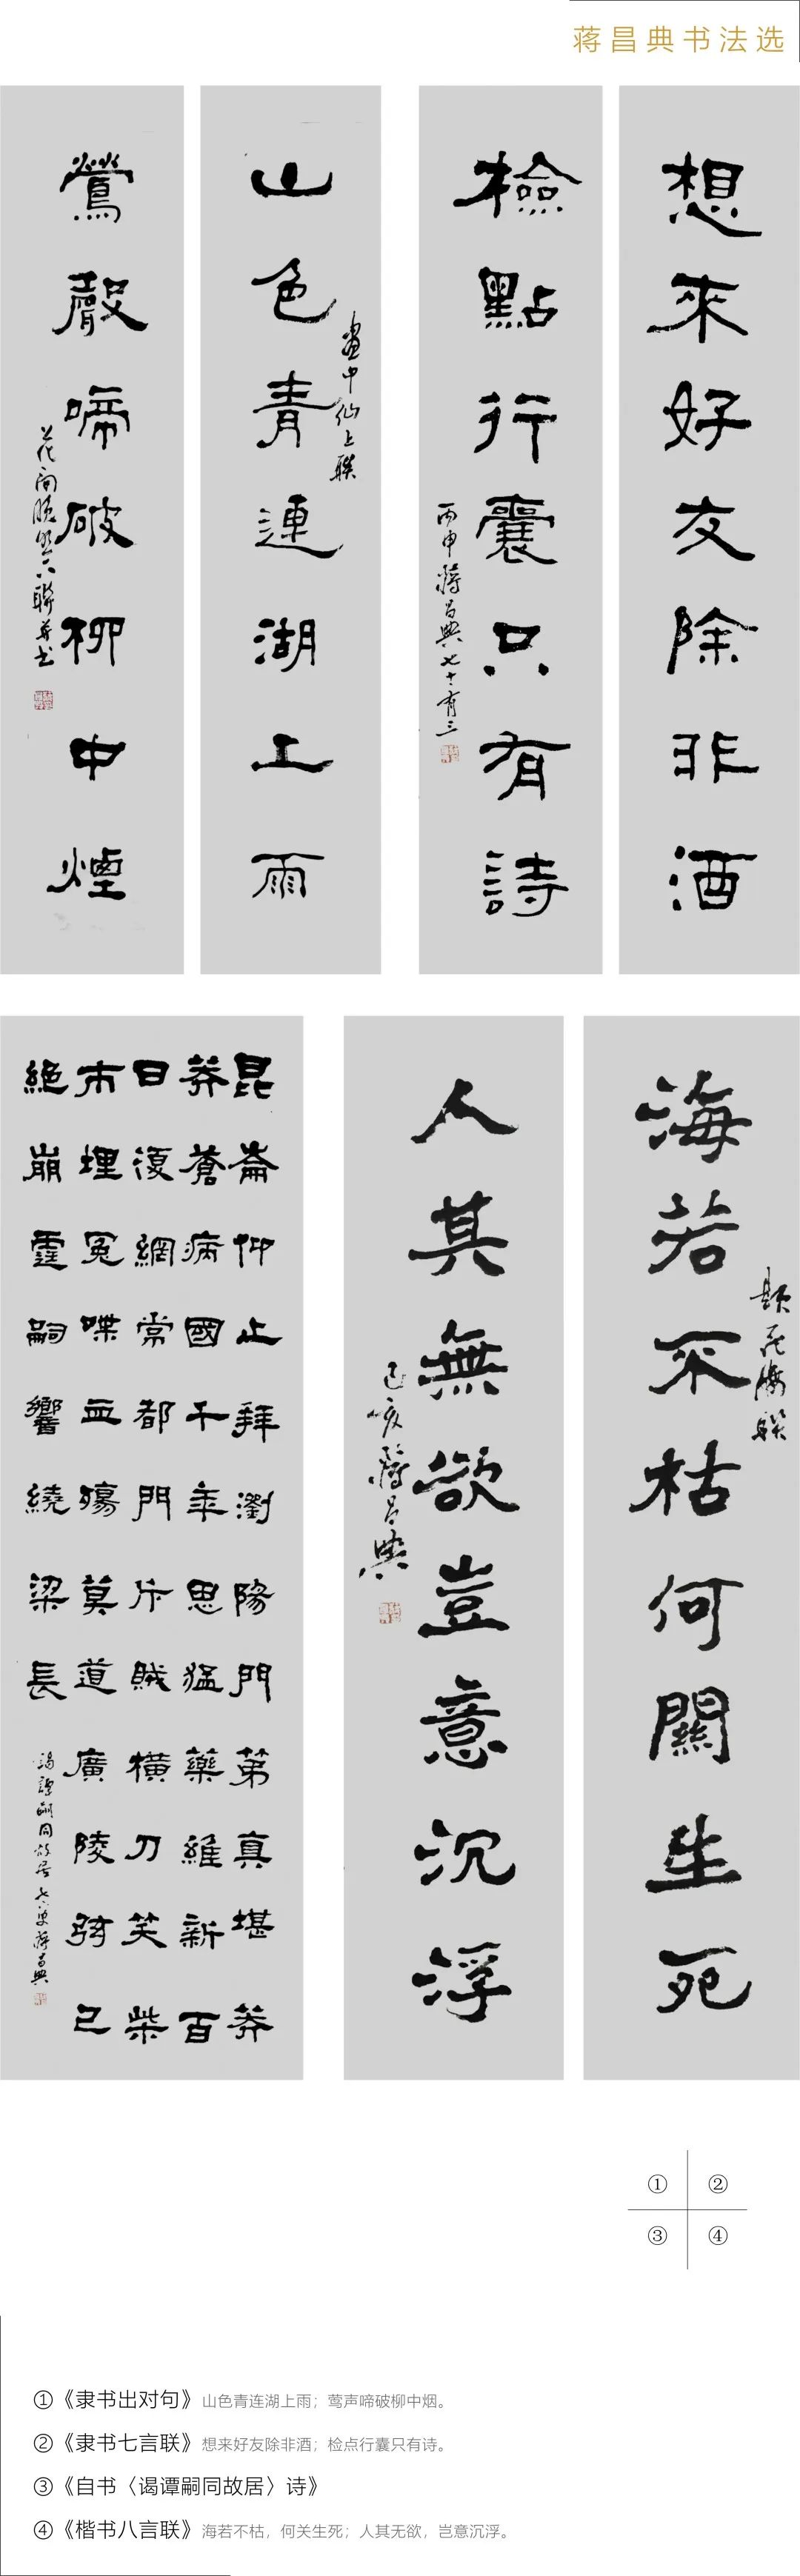 蒋昌典书法选
山色青連湖上雨
畫中仙上聯
鶯聲啼破柳中煙
想來好友除非酒
檢點行囊只有詩
丙申蔣昌典七十有三
昆崙仰止拜瀏陽門第真堪莽
莽蒼病國千年思猛藥維新百
日復綱常都門斥賊橫刀笑柴
市埋冤喋血殤莫道廣陵弦已
絕崩霆嗣響繞梁長
謁譚嗣同故居七六叟蔣昌典
海若不枯何關生死
題花海聯
人其無欲豈意沉浮
己亥蔣昌典
① ②
③ ④
①《隶书出对句》山色青连湖上雨；莺声啼破柳中烟。
②《隶书七言联》想来好友除非酒；检点行囊只有诗。
③《自书〈谒谭嗣同故居〉诗》
④《楷书八言联》海若不枯，何关生死；人其无欲，岂意沉浮。